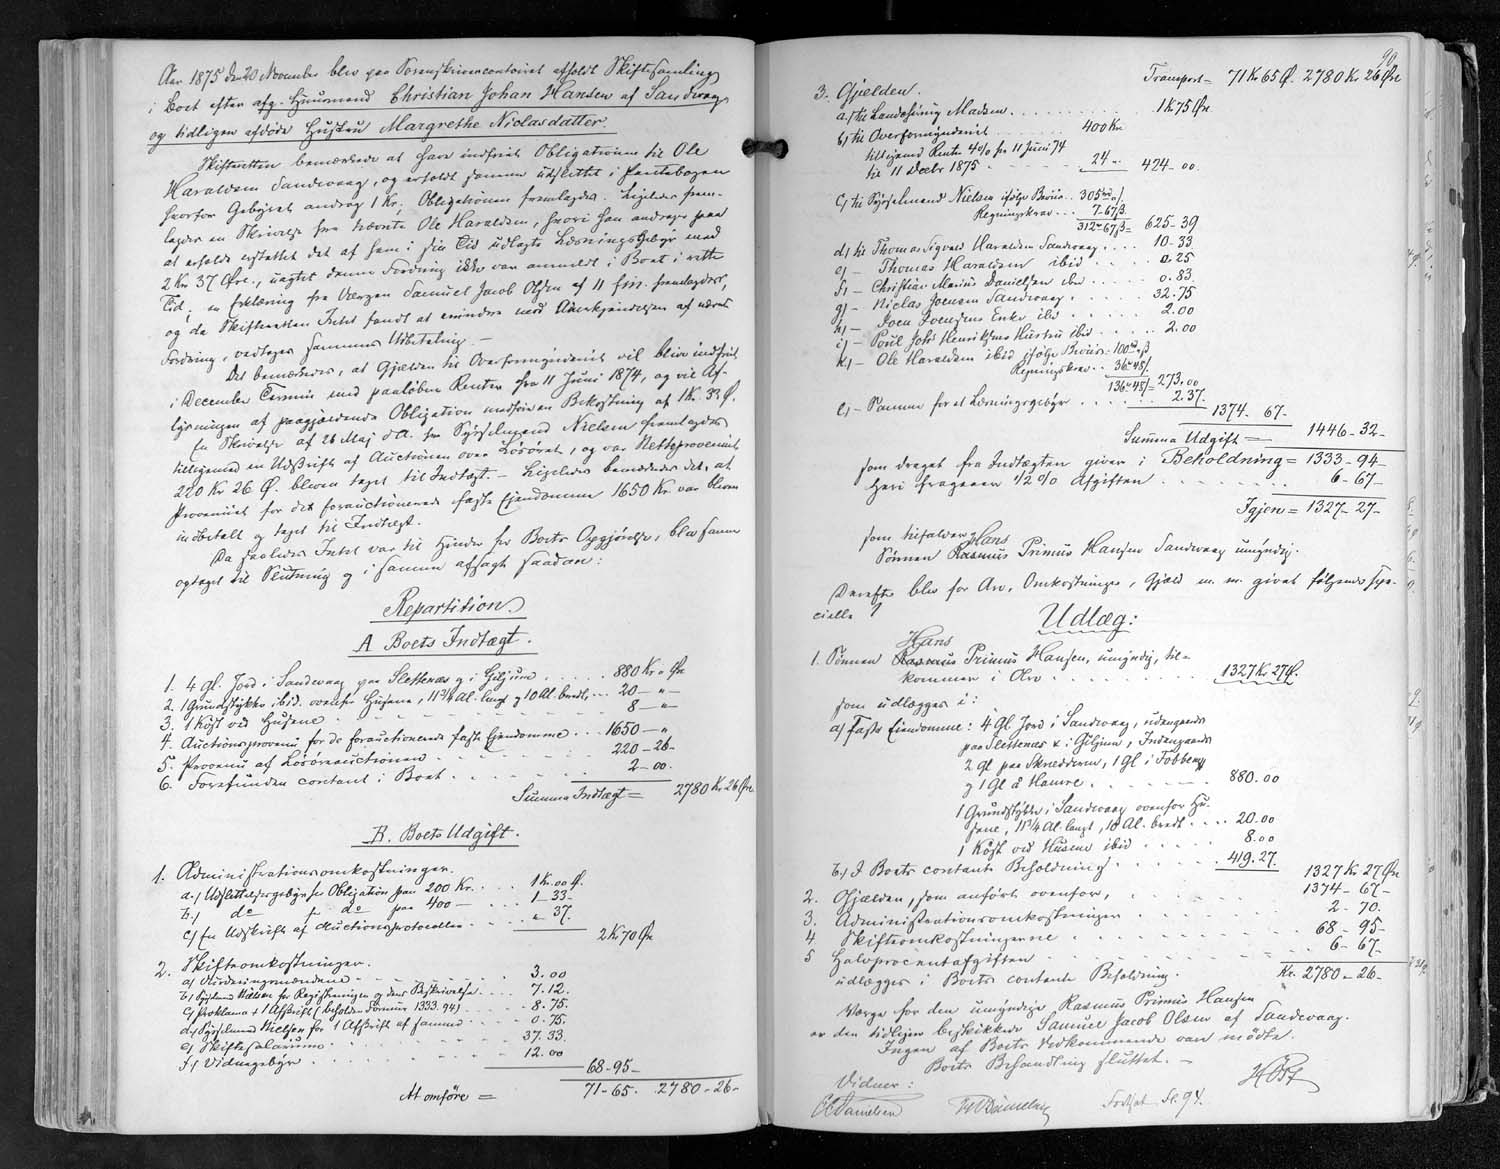 Aar 1875 den 20 November blev paa Sorenskrivercontoiret afholdt Skiftesamling
i Boet efter afg. Huusmand Christian Johan Hansen af Sandvaag
og tidligere afdøde Hustru Margrethe Niclasdatter.
Skifteretten bemærkede at have indfriet Obligationen til Ole
Haraldsen Sandevaag, og erholdt samme udslettet i Pantebogen
hvorfor Gebyret androg 1 Kr. Obligationen fremlagdes. Ligeledes frem-
lagdes en Skrivelse fra nævnte Ole Haraldsen, hvori han androges paa
at erholde erstattet det af ham i sin Tid udlagte Læsningsgebyr med
2 Kr 37 Øre, uagtet denne Fordring ikke var anmeldt i Boet i rette
Tid; en Erklæring fra Værgen Samuel Jacob Olsen af 11 fremlagdes,
og da Skifteretten Intet fandt at erindre mod Anerkjendelsen af nævnte
Fordring, vedtoges sammes Udbetaling. —
Det bemærkedes, at Gjælden til Overformynderiet vil blive indfriet
i December Termin med paaløbne Renter fra 11 Juni 1874, og vil Af-
lysningen af paagjældende Obligation medføre en Bekostning af 1 Kr. 33 Ø.
En Skrivelse af 26 Maj d.A. fra Sysselmand Nielsen fremlagdes
tilligemed en Udskrift af Auctionen over Løsøret, og var Nettoprovenuet
220 Kr 26 Ø. bleven taget til Indtægt. — Ligeledes bemærkedes det, at
Provenuet for det forauctionerede faste Ejendomme 1650 Kr. var bleven
indbetalt og taget til Indtægt.
Da saaledes Intet var til Hinder for Boets Opgjørelse, blev samme
optaget til Slutning og i samme afsagt saadan:
Repartition
A Boets Indtægt.
1. 4 gl. Jord i Sandevaag paa Slettenæs og i Giljum . . . . 880 Kr " Ør
2. 1 Grundstykke ibid. ovenfor Husene, 11 3/4 Al. langt og 10 Al. bredt . . . 20 — " —
3. 1 Køst ved Husene 8 — " —
4. Auctionsprovenu for de forauctionerede faste Ejendomme . . . 1650 — "
5. Provenu af Løsøreauctionen . . . 220 - 26 -
6. Forefunden contant i Boet . . . 2 — 00.
Summa Indtægt = 2780 Kr 26 Øre
B. Boets Udgift.
1. Administrationsomkostninger.
a.) Udslettelsesgebyr for Obligation paa 200 Kr. . . . 1 Kr. 00 Ø.
b.) do f. do paa 400 — . . . 1 — 33 -
c) En Udskrift af Auctionsprotocollen . . . " 37.
2 Kr 70 Øre
2. Skifteomkostninger.
a) Vurderingsmændene . . . 3.00
b) Sysselmd Nielsen for Registreringen og dens Beskrivelse . . . 7.12.
c) Proklama + 1 Afskrift (beholden Formue 1333.94) . . . 8.75.
d) Sysselmd Nielsen for 1 Afskrift af samme . . . 0.75.
e) Skiftesalarium . . . 37.33.
f) Vidnegebyr . . . 12.00
68 - 95 -
At omføre = 71 - 65. 2780 - 26 -
90.
Transport = 71 Kr 65 Ø. 2780 Kr 26 Øre
3. Gjælden.
a.) til Landchirurg Madsen . . . 1 Kr 75 Øre
b.) til Overformynderiet . . . 400 Kr
tilligemed Renter 4% fra 11 Juni 74
til 11 Decbr 1875 . . . 24 - " 424 - 00.
c) til Sysselmand Nielsen ifølge Beviis . . 305
Regningskrav . . . 7 - 67 β.
312 67 β = 625 - 39
d) til Thomas Sigvald Haraldsen Sandevaag . . . 10 - 33
e) — Thomas Haraldsen ibid . . . 0.25
f) — Christian Marius Danielsen ibd . . . 0.83
g) — Niclas Joensen Sandevaag . . . 32.75
h) — Joen Joensens Enke ibd . . . 2.00
i) — Poul Johs Henriksens Hustru ibid . . . 2.00
k) — Ole Haraldsen ibid ifølge Beviis 100
Regningskrav . . 36 45 β
136 45 β = 273.00
l) — Samme for et Læsningsgebyr . . . 2.37.
1374 - 67 -
Summa Udgift = 1446 - 32 -
som draget fra Indtægten giver i Beholdning = 1333 - 94 -
heri fragaaer 1/2 % Afgiften . . . 6 - 67 -
Igjen = 1327 - 27 -
som tilfalder
Hans
Sønnen Rasmus Primus Hansen Sandevaag umyndig.
Derefter blev for Arv, Omkostninger, Gjæld m. m. givet følgende spe-
cielle
Udlæg:
Hans
1. Sønnen Rasmus Primus Hansen, umyndig, til-
kommer i Arv . . . 1327 Kr 27 Ø.
som udlægges i:
a) Faste Eiendomme: 4 Gl. Jord i Sandevaag, udengaards
paa Slettenæs & i Giljum, Indengaards
2 gl paa Skrædderen, 1 Gl i
og 1 Gl å Hamre . . . 880.00
1 Grundstykke i Sandevaag ovenfor Hu-
sene, 11 3/4 Al. langt, 10 Al. bredt . . . 20.00
1 Køst ved Husene ibid . . . 8.00
b.) I Boets contante Beholdning . . . 419.27. 1327 Kr 27 Øre
2. Gjælden, som anført ovenfor, . . . 1374 - 67 -
3. Administrationsomkostninger . . . 2 - 70.
4. Skifteomkostningerne . . . 68 - 95 -
5 Halvprocentafgiften . . . 6 - 67 -
udlægges i Boets contante Beholdning. Kr. 2780 - 26 -
Værge for den umyndige Rasmus Primus Hansen
er den tidligere beskikkede Samuel Jacob Olsen af Sandevaag.
Ingen af Boets Vedkommende var mødte.
Boets Behandling sluttet. —
HØst
Vidner:
Danielsen Danielsen Fortsat Fl. 94.